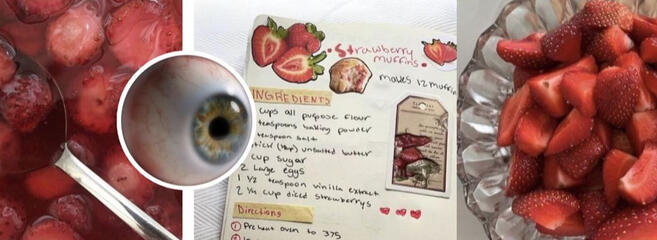 Strawberry
muffins
makes 12 muffin
INGREDIENTS
cups all purpose flour
teaspoons baking powder
teaspoon salt
stick (8tbsp) unsalted butter
cup sugar
2 Large eggs
1 1/2 teaspoon vinilla extract
2 1/4 cup diced strawberrys
Directions
① Preheat oven to 375